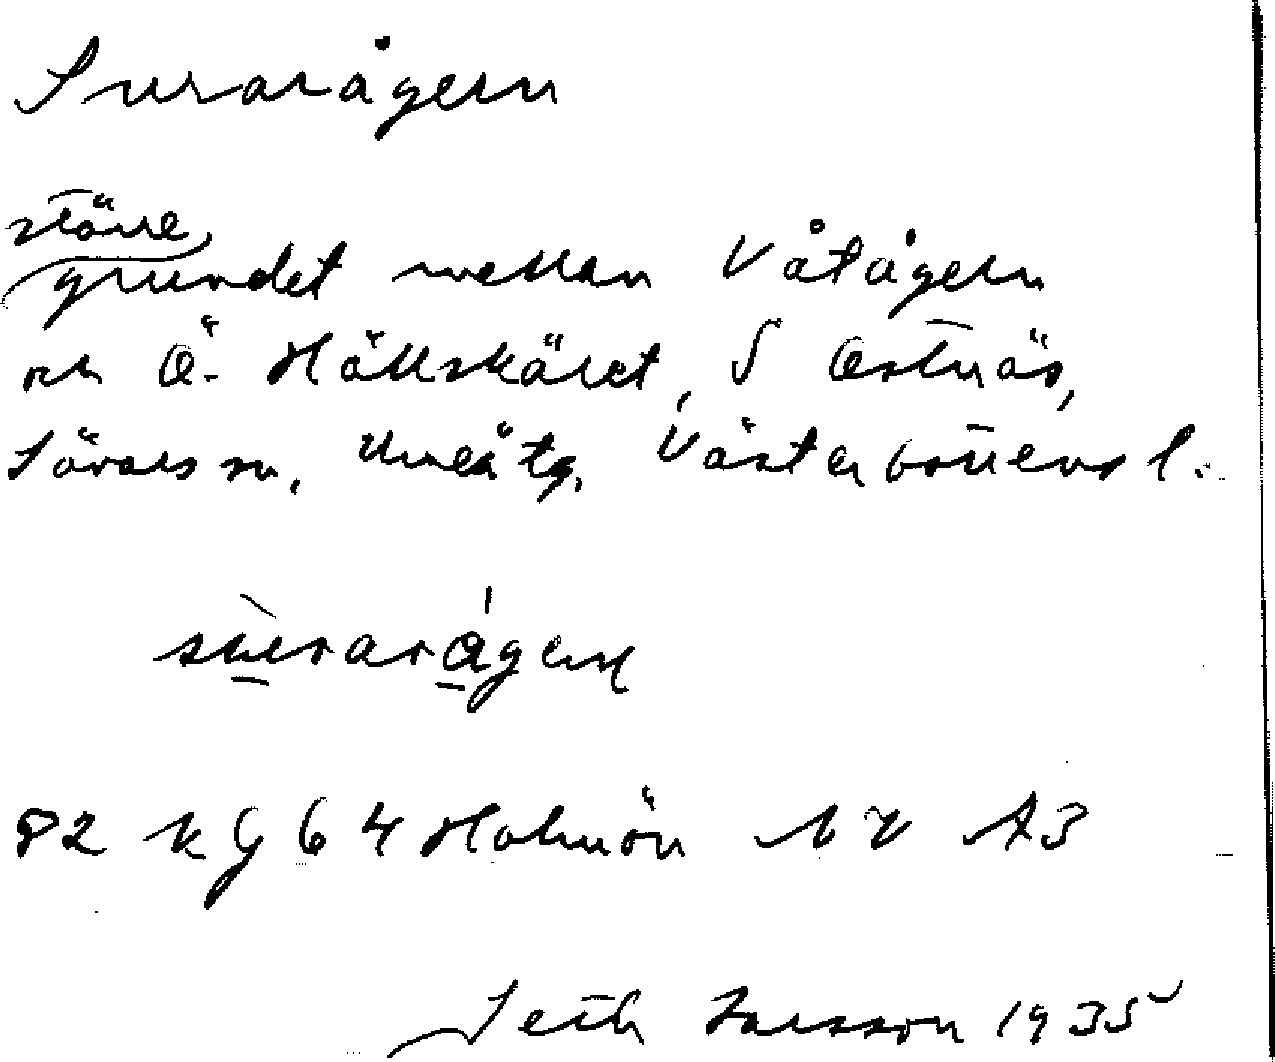 Surarågern
större
grundet mellan Våtågern
och Ö. Hällskäret, S Ostnäs,
Sävars sn, Umeå tg, Västerbottens l.
surarågern
82 kg 64 Holmön NV A3
Seth Larsson 1935